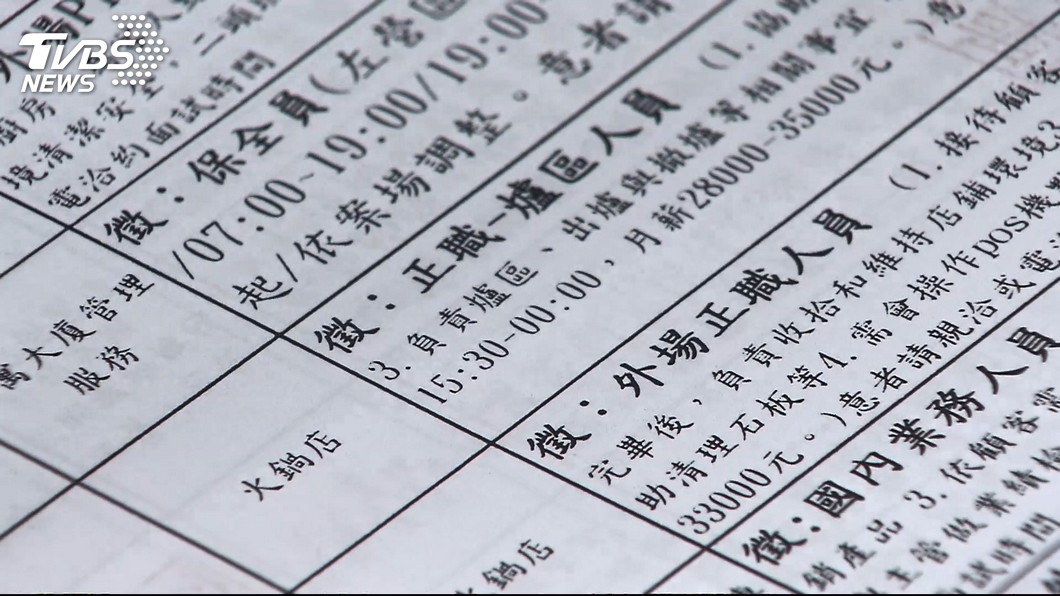 TVBS
NEWS
廚房
境清潔安全,二頭
電洽約面試時間
徵:保全員(左營區
/07:00~19:00/19:00-
起/依案場調整。意者請
寓大廈管理
服務
徵:正職-爐區人員 (1.協助
3.負責爐區、出爐與撤爐等相關事宜
15:30-00:00,月薪28000~35000元。)意
火鍋店
徵:外場正職人員 (1.接待顧客
完畢後,負責收拾和維持店鋪環境2
助清理石板等4.需會操作DOS機
33000元。)意者請親洽或電
鍋店
徵:國內業務人員
銷產品 3.依顧客需
主管做業績
試時間